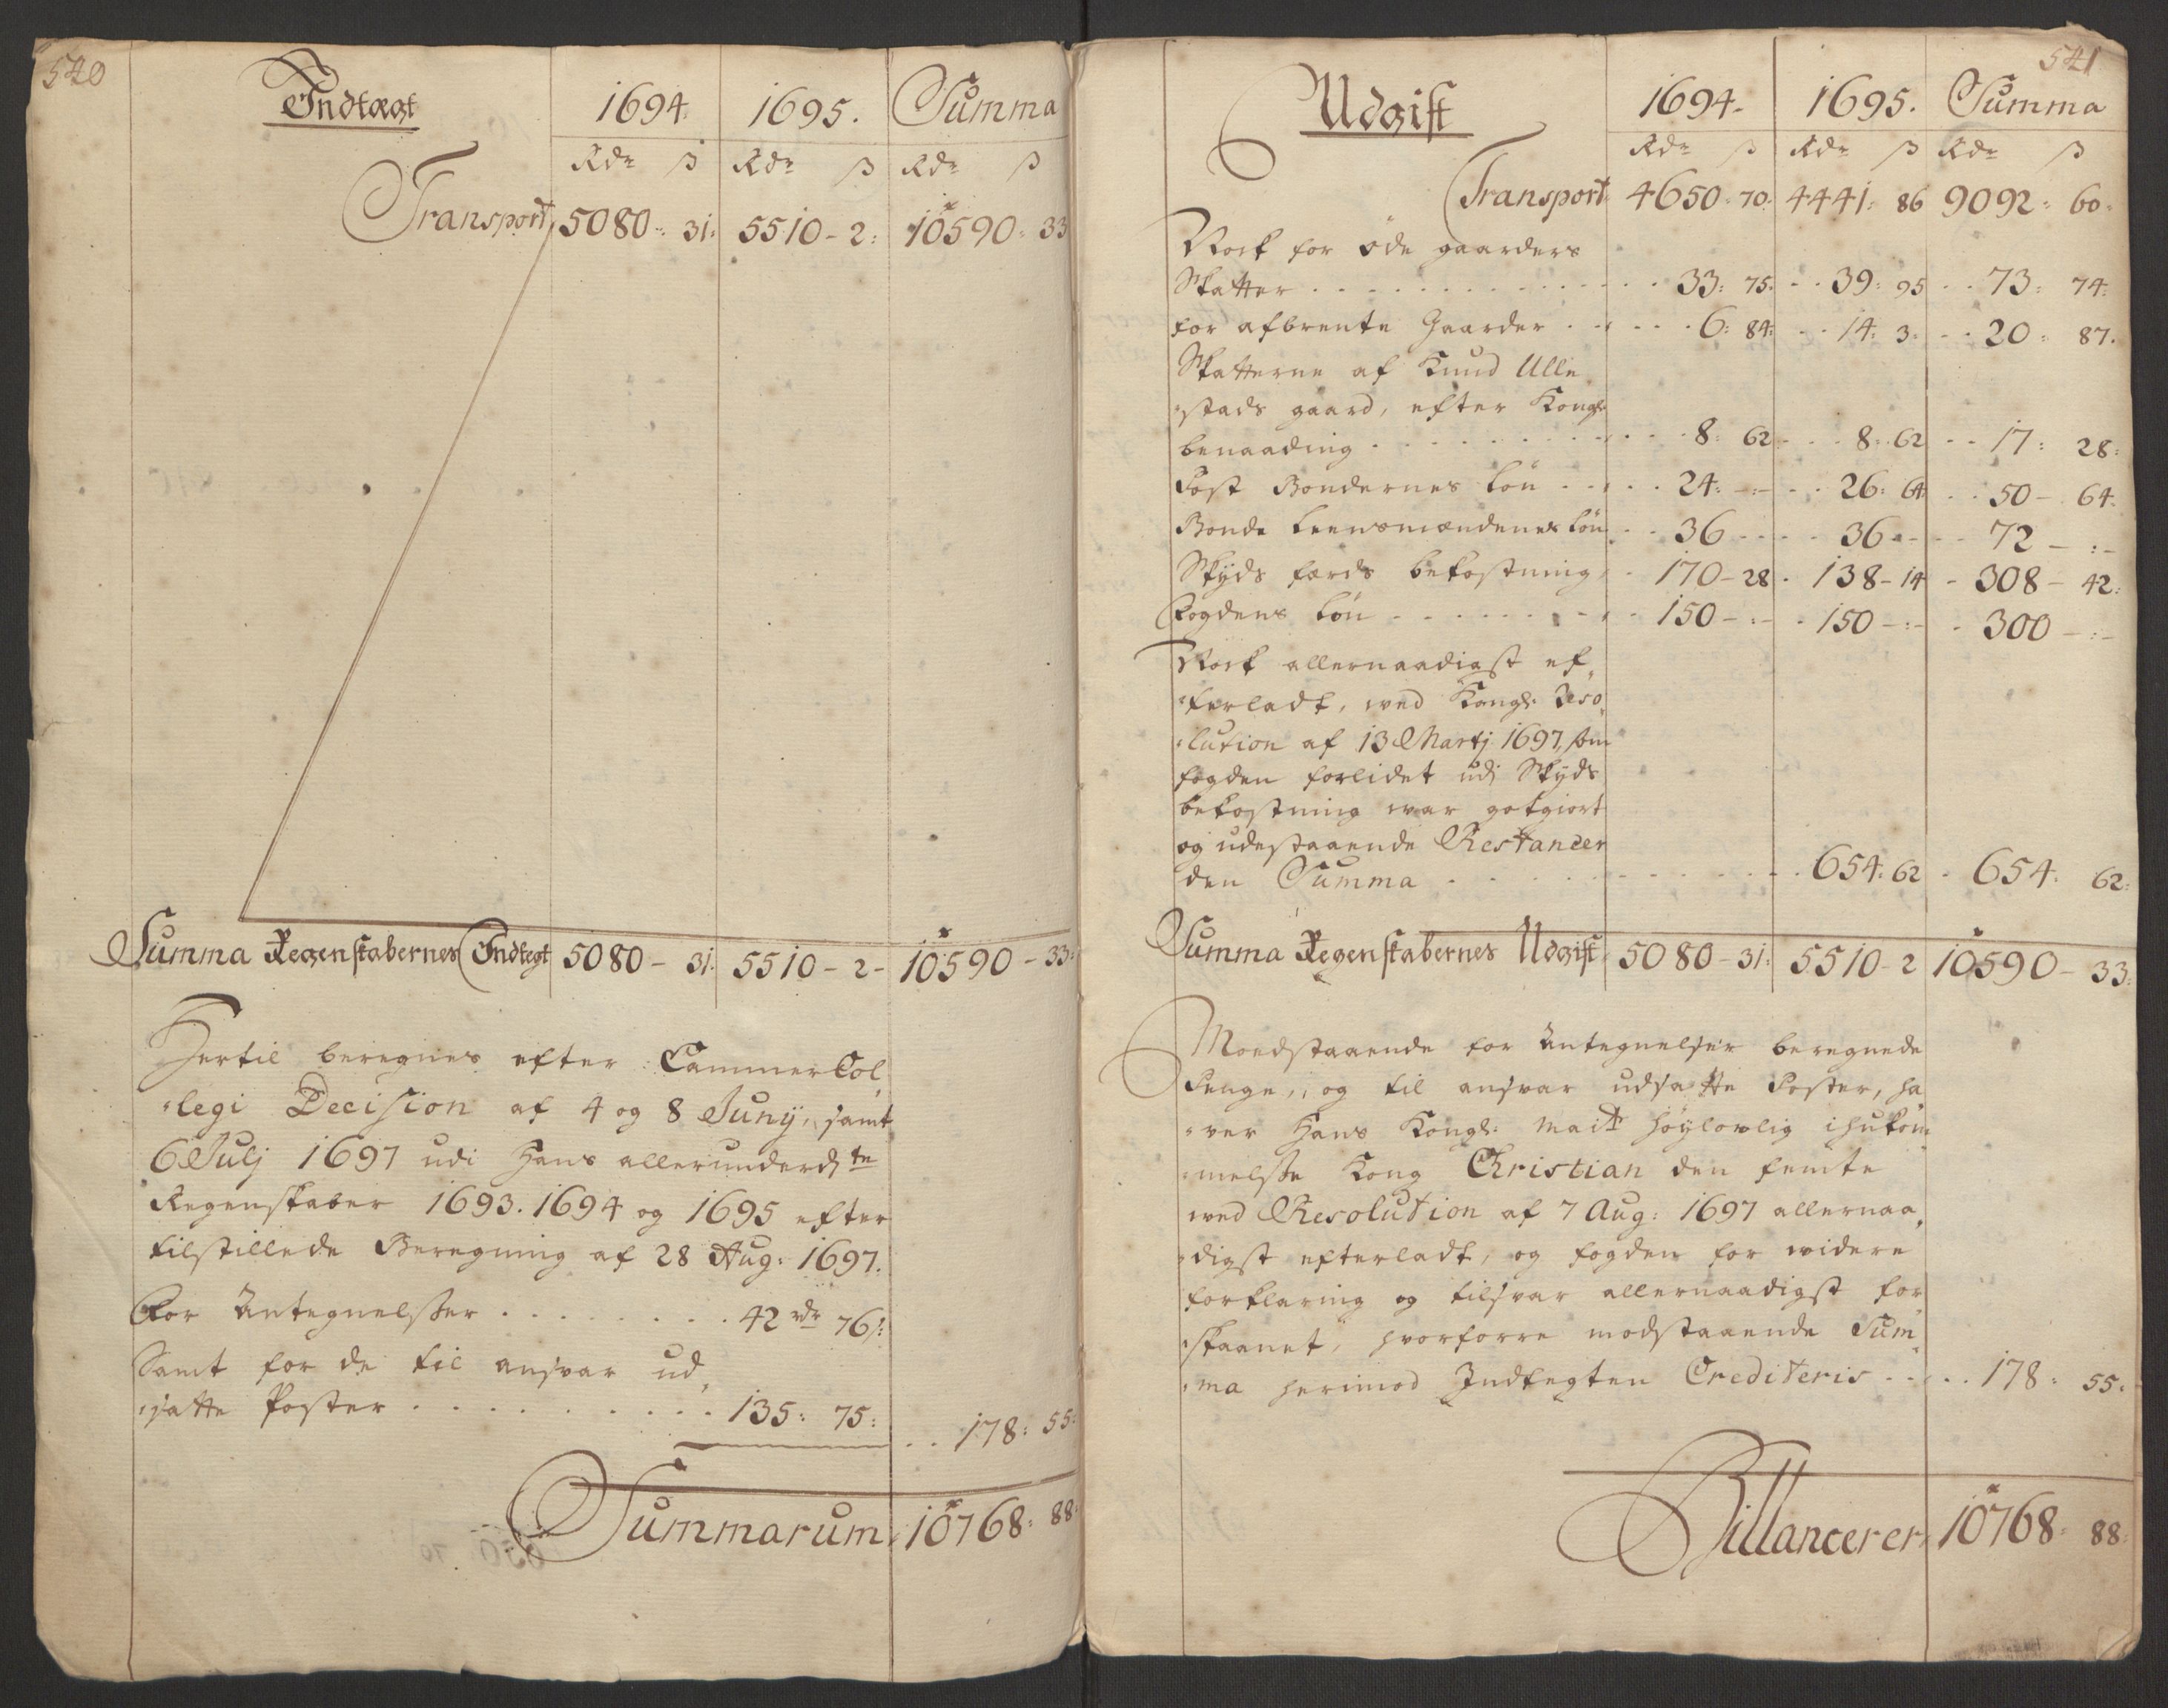 540
Indtægt 1694. 1695. Summa
Rdr ß Rdr ß Rdr ß
Transport, 5080-: 31: 5510-2: 10590: 33
Summa Regenskabernes Indtegt 5080- 31: 5510-2- 10590-33:
Hertil beregnes efter CammerCol
legi Decision af 4 og 8 Junij, samt
6 Julj 1697 udi Hans allerunderdte
Regenskaber 1693. 1694 og 1695 efter
tilstillede Beregning af 28 Aug: 1697.
For Antegnelsser . . . . . . . 42 rdr 76ß:
Samt for de til ansvar ud,
satte Poster . . . . . . . . . . 135: 75: . . 178: 55:
Summarum, 10768: 88:
541
Udgift 1694- 1695. Summa
Rdr ß Rdr ß Rdr ß
Transport 4650: 70: 4441: 86 9092: 60:
Nock for øde gaarders
Skatter . . . . . . . . . . . . 33: 75. . . 39: 95 . . 73: 74:
for afbrente Gaarder . . . . . 6: 84: . . 14: 3: . . 20: 87.
Skatterne af Knud Ulle
stads gaard, efter Kongl:
benaading . . . . . . . . . 8: 62 . . 8: 62 . . 17: 28:
Post Bondernes løn . . . . 24: -:- . . 26: 64 . . 50- 64:
Bonde Leensmændenes løn . . 36 . . . . 36 . . . . 72 -:-
Skyds færds bekostning, . 170-28 . 138-14 . 308- 42:
Fogdens løn . . . . . . . . 150-:- . 150-:- . 300 -:-
Nock allernaadigst ef,
terladt, ved Kongl: Reso,
lution af 13 Martj 1697, som
fogden forlidet udj Skyds
bekostning war gotgiort
og udestaaende Restancer
den Summa . . . . . . . . . . 654: 62 . 654: 62:
Summa Regenskabernes Udgift 5080-31: 5510-2 10590- 33:
Moedstaaende for Antegnelser beregnede
Penge, og til ansvar udsatte Poster, ha
ver Hans Kongl: Maitt høylovlig ihukom
melsse Kong Christian den femte
ved Resolution af 7 Aug: 1697 allernaa,
digst efterladt, og fogden for widere
forklaring og tilsvar allernaadigst for
skaanet, hvorforre modstaaende Sum
ma herimod Indtegten Crediteris . . . . 178: 55:
Billancerer, 10768: 88: